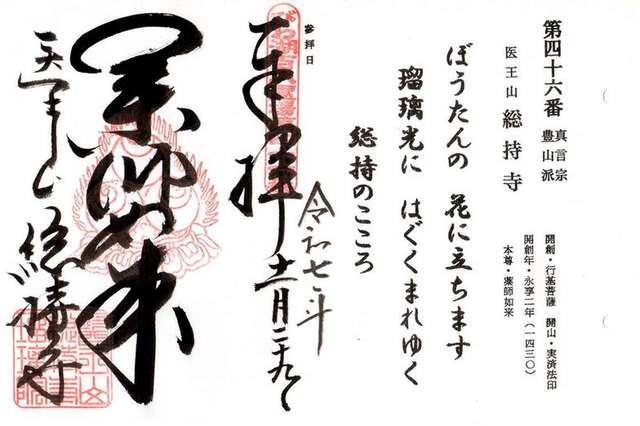 第四十六番
真言宗
豊山派
医王山 総持寺
開創・行基菩薩 開山・実済法印
開創年・永享二年(一四三〇)
本尊・薬師如来
ぼうたんの 花に立ちます
瑠璃光に はぐくまれゆく
総持のこころ
参拝日
奉拝
令和七年
十一月二十九日
薬師如来
医王山
総持寺